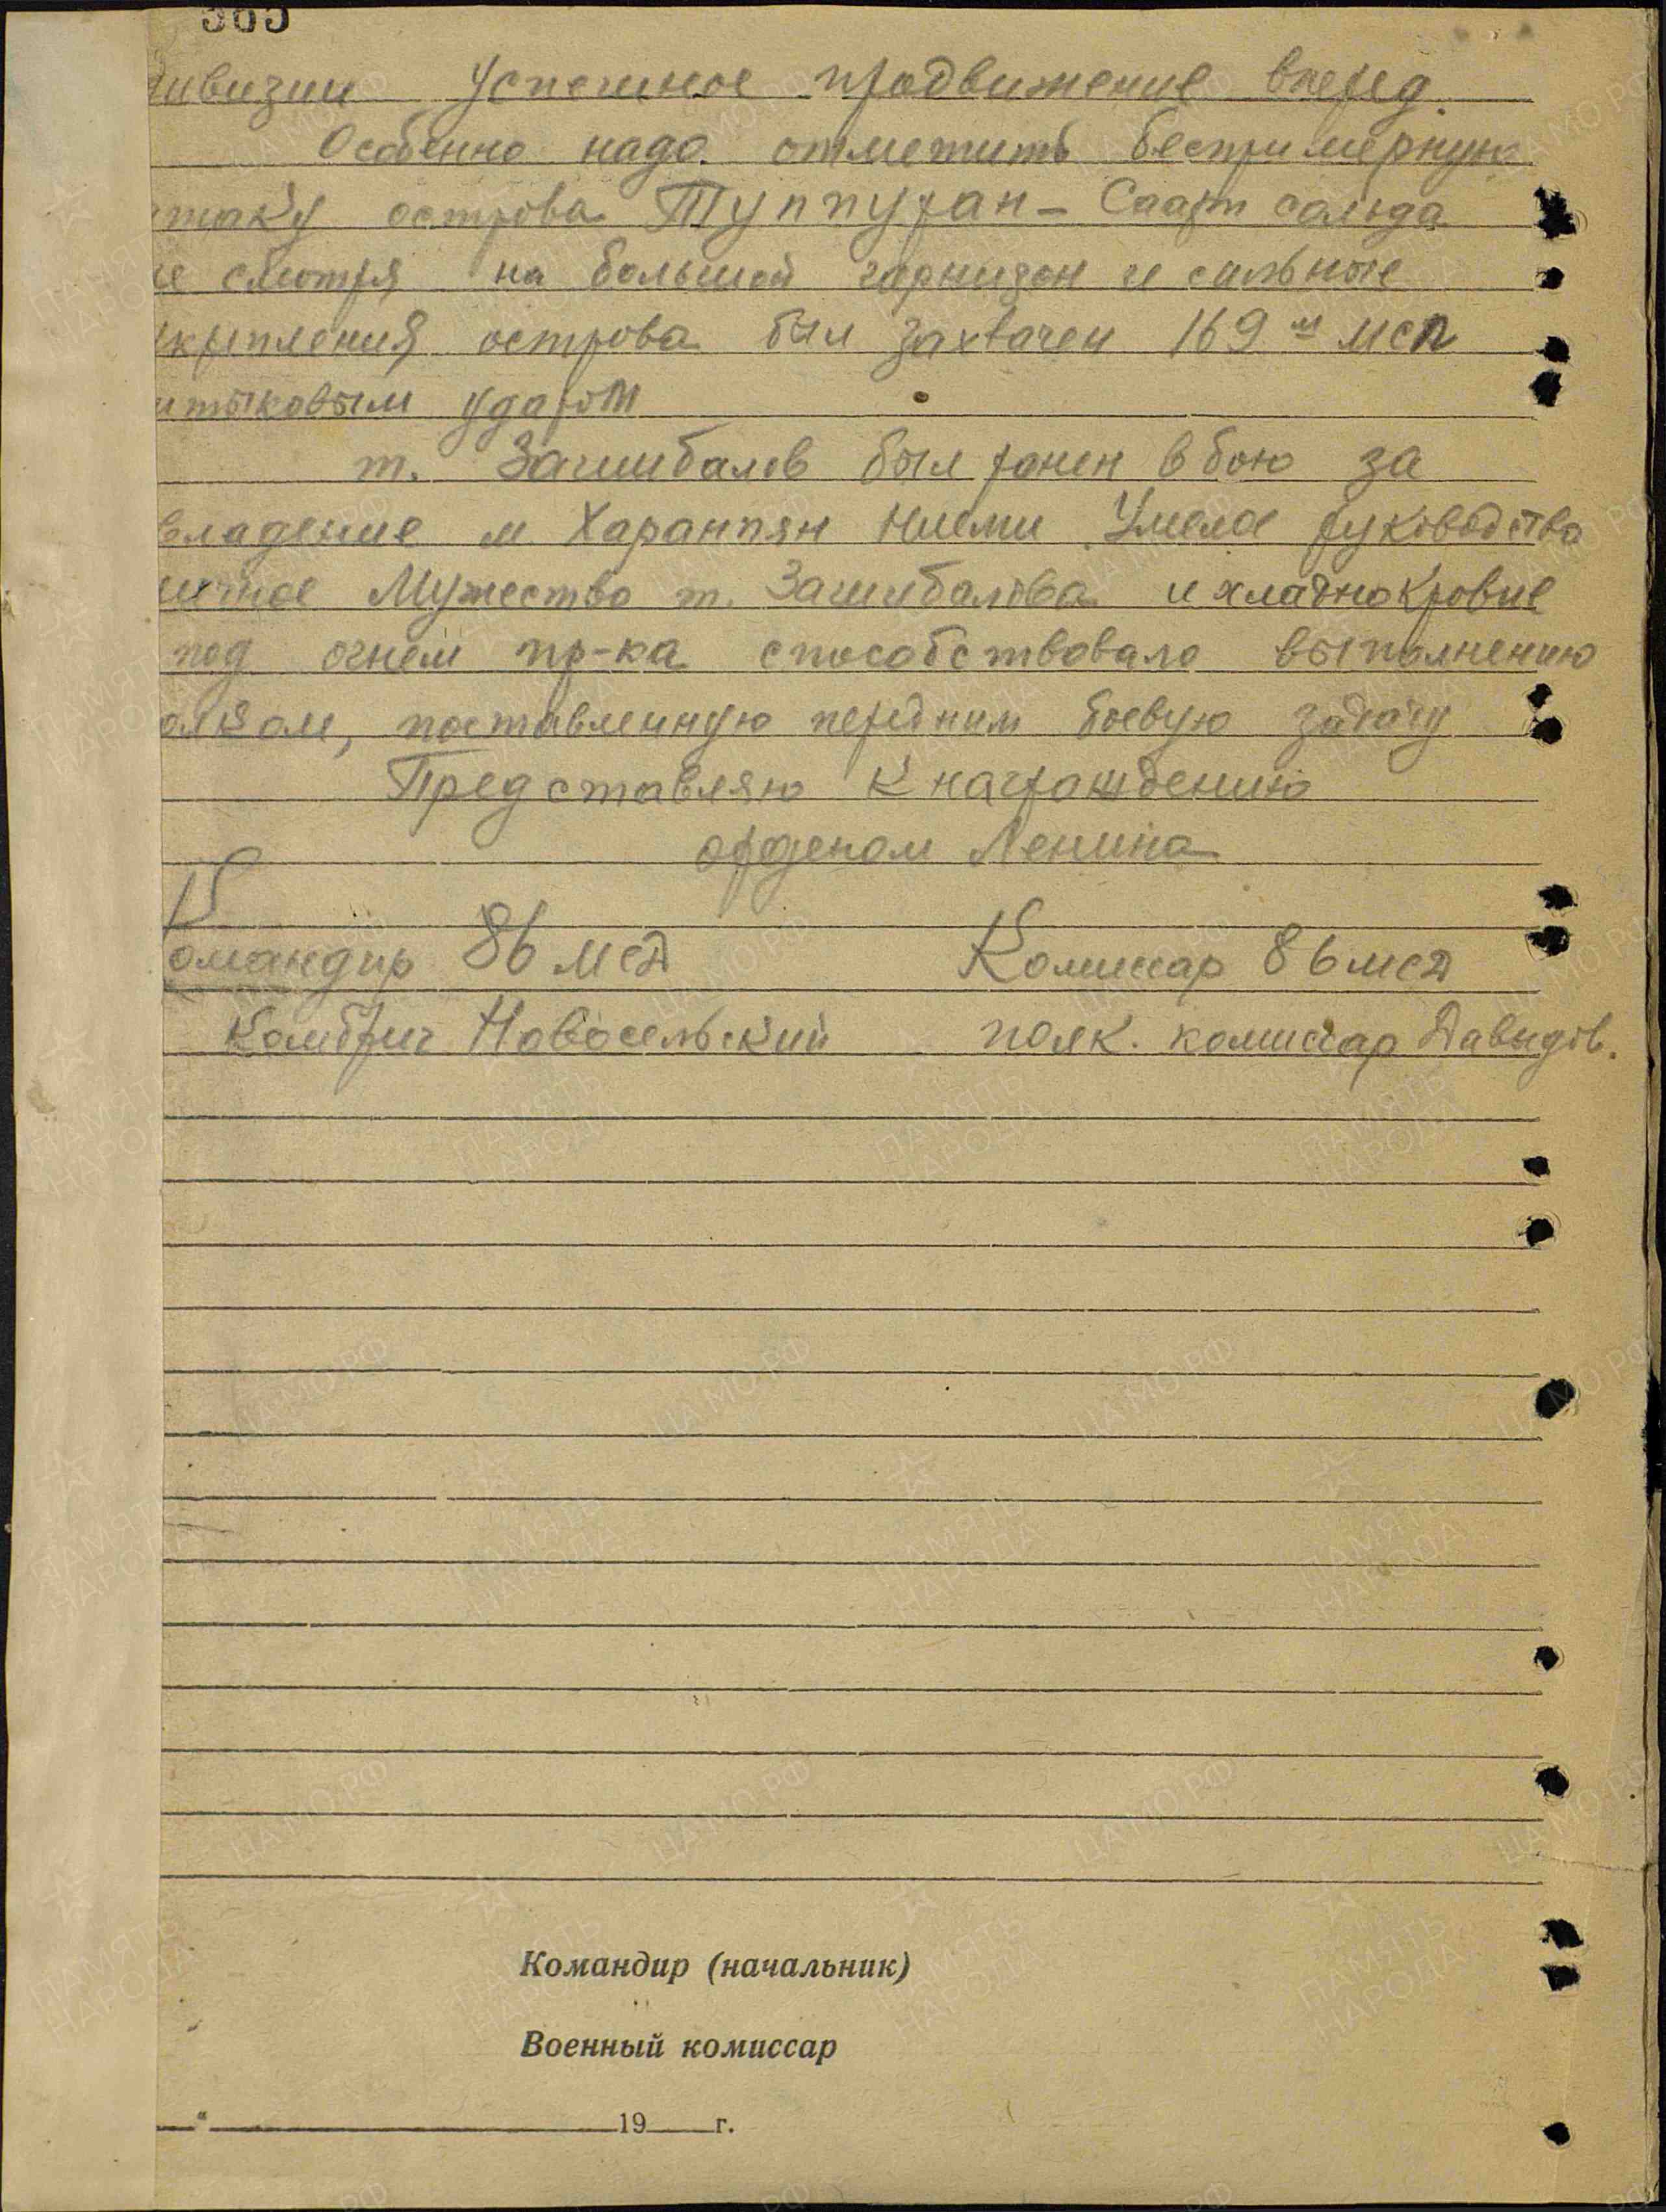 365
дивизии успешное продвижение вперед.
Особенно надо отметить беспримерную
атаку острова Туппуран-Саари
не смотря на большой гарнизон и сильные
укрепления острова был захвачен 169м мсп
штыковым ударом
т. Загинбалов был ранен в бою за
владение м. Харанпян Ниеми. Умелое руководство
личное Мужество т. Загинбалова и хладнокровие
под огнем пр-ка способствовало выполнению
полком, поставленную перед ним боевую задачу
Представляю к награждению
орденом Ленина
Командир 86 мсд Комиссар 86 мсд
Комбриг Новосельский полк. комиссар Давыдов.
Командир (начальник)
Военный комиссар
" 19 г.